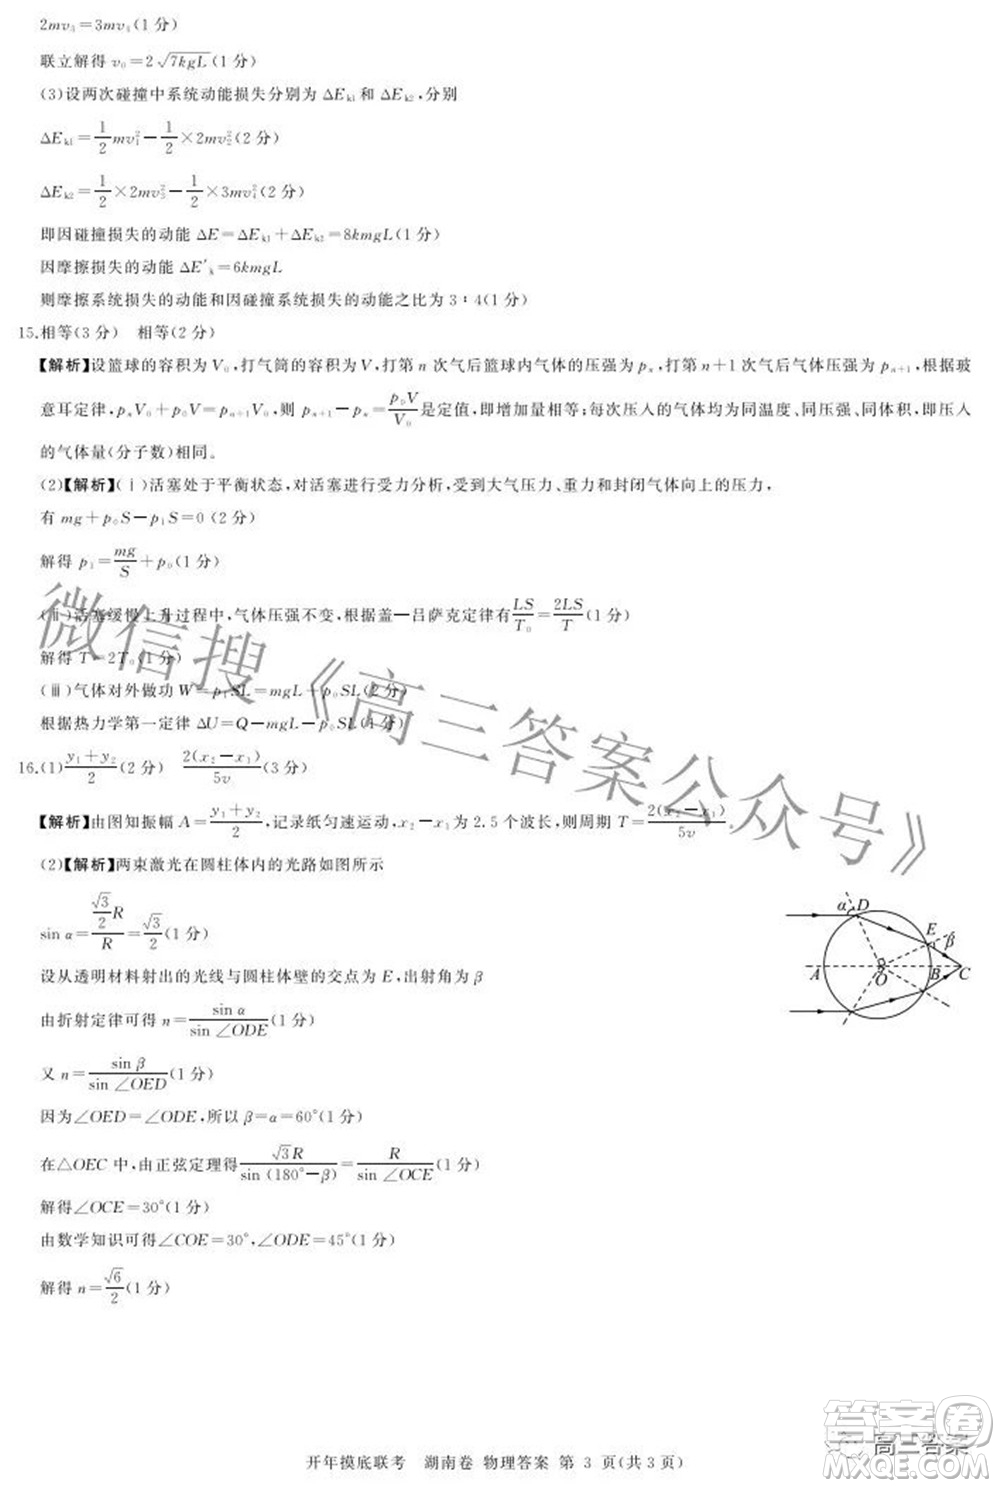 2mv₃=3mv₄(1 分)
联立解得 v₀=2√(7kgL)(1 分)
(3)设两次碰撞中系统动能损失分别为 ΔEₖ₁ 和 ΔEₖ₂,分别
ΔEₖ₁=1/2 mv₁²−1/2×2mv₂²(2 分)
ΔEₖ₂=1/2×2mv₃²−1/2×3mv₄²(2 分)
即因碰撞损失的动能 ΔE=ΔEₖ₁+ΔEₖ₂=8kmgL(1 分)
因摩擦损失的动能 ΔE′ₖ=6kmgL
则摩擦系统损失的动能和因碰撞系统损失的动能之比为 3∶4(1 分)
15.相等(3 分) 相等(2 分)
【解析】设篮球的容积为 V₀,打气筒的容积为 V,打第 n 次气后篮球内气体的压强为 pₙ,打第 n+1 次气后气体压强为 pₙ₊₁,根据玻
意耳定律,pₙV₀+p₀V=pₙ₊₁V₀,则 pₙ₊₁−pₙ=p₀V/V₀是定值,即增加量相等;每次压入的气体均为同温度、同压强、同体积,即压入
的气体量(分子数)相同。
(2)【解析】(ⅰ)活塞处于平衡状态,对活塞进行受力分析,受到大气压力、重力和封闭气体向上的压力,
有 mg+p₀S−p₁S=0(2 分)
解得 p₁=mg/S+p₀(1 分)
(ⅱ)活塞缓慢上升过程中,气体压强不变,根据盖—吕萨克定律有LS/T₀=2LS/T(1 分)
解得 T=2T₀(1 分)
(ⅲ)气体对外做功 W=p₁SL=mgL+p₀SL(2 分)
根据热力学第一定律 ΔU=Q−mgL−p₀SL(1 分)
16.(1)(y₁+y₂)/2(2 分) 2(x₂−x₁)/5v(3 分)
【解析】由图知振幅 A=(y₁+y₂)/2,记录纸匀速运动,x₂−x₁为 2.5 个波长,则周期 T=2(x₂−x₁)/5v。
(2)【解析】两束激光在圆柱体内的光路如图所示
sin α=(√3/2 R)/R=√3/2(1 分)
设从透明材料射出的光线与圆柱体壁的交点为 E,出射角为 β
由折射定律可得 n=sin α/sin ∠ODE(1 分)
又 n=sin β/sin ∠OED(1 分)
因为∠OED=∠ODE,所以 β=α=60°(1 分)
在△OEC 中,由正弦定理得√3R/sin (180°−β)=R/sin ∠OCE(1 分)
解得∠OCE=30°(1 分)
由数学知识可得∠COE=30°,∠ODE=45°(1 分)
解得 n=√6/2(1 分)
α D
E
β
A O B C
微信搜《高三答案公众号》
开年摸底联考 湖南卷 物理答案 第 3 页(共 3 页)
答案圈
高三答案
MXQE.COM